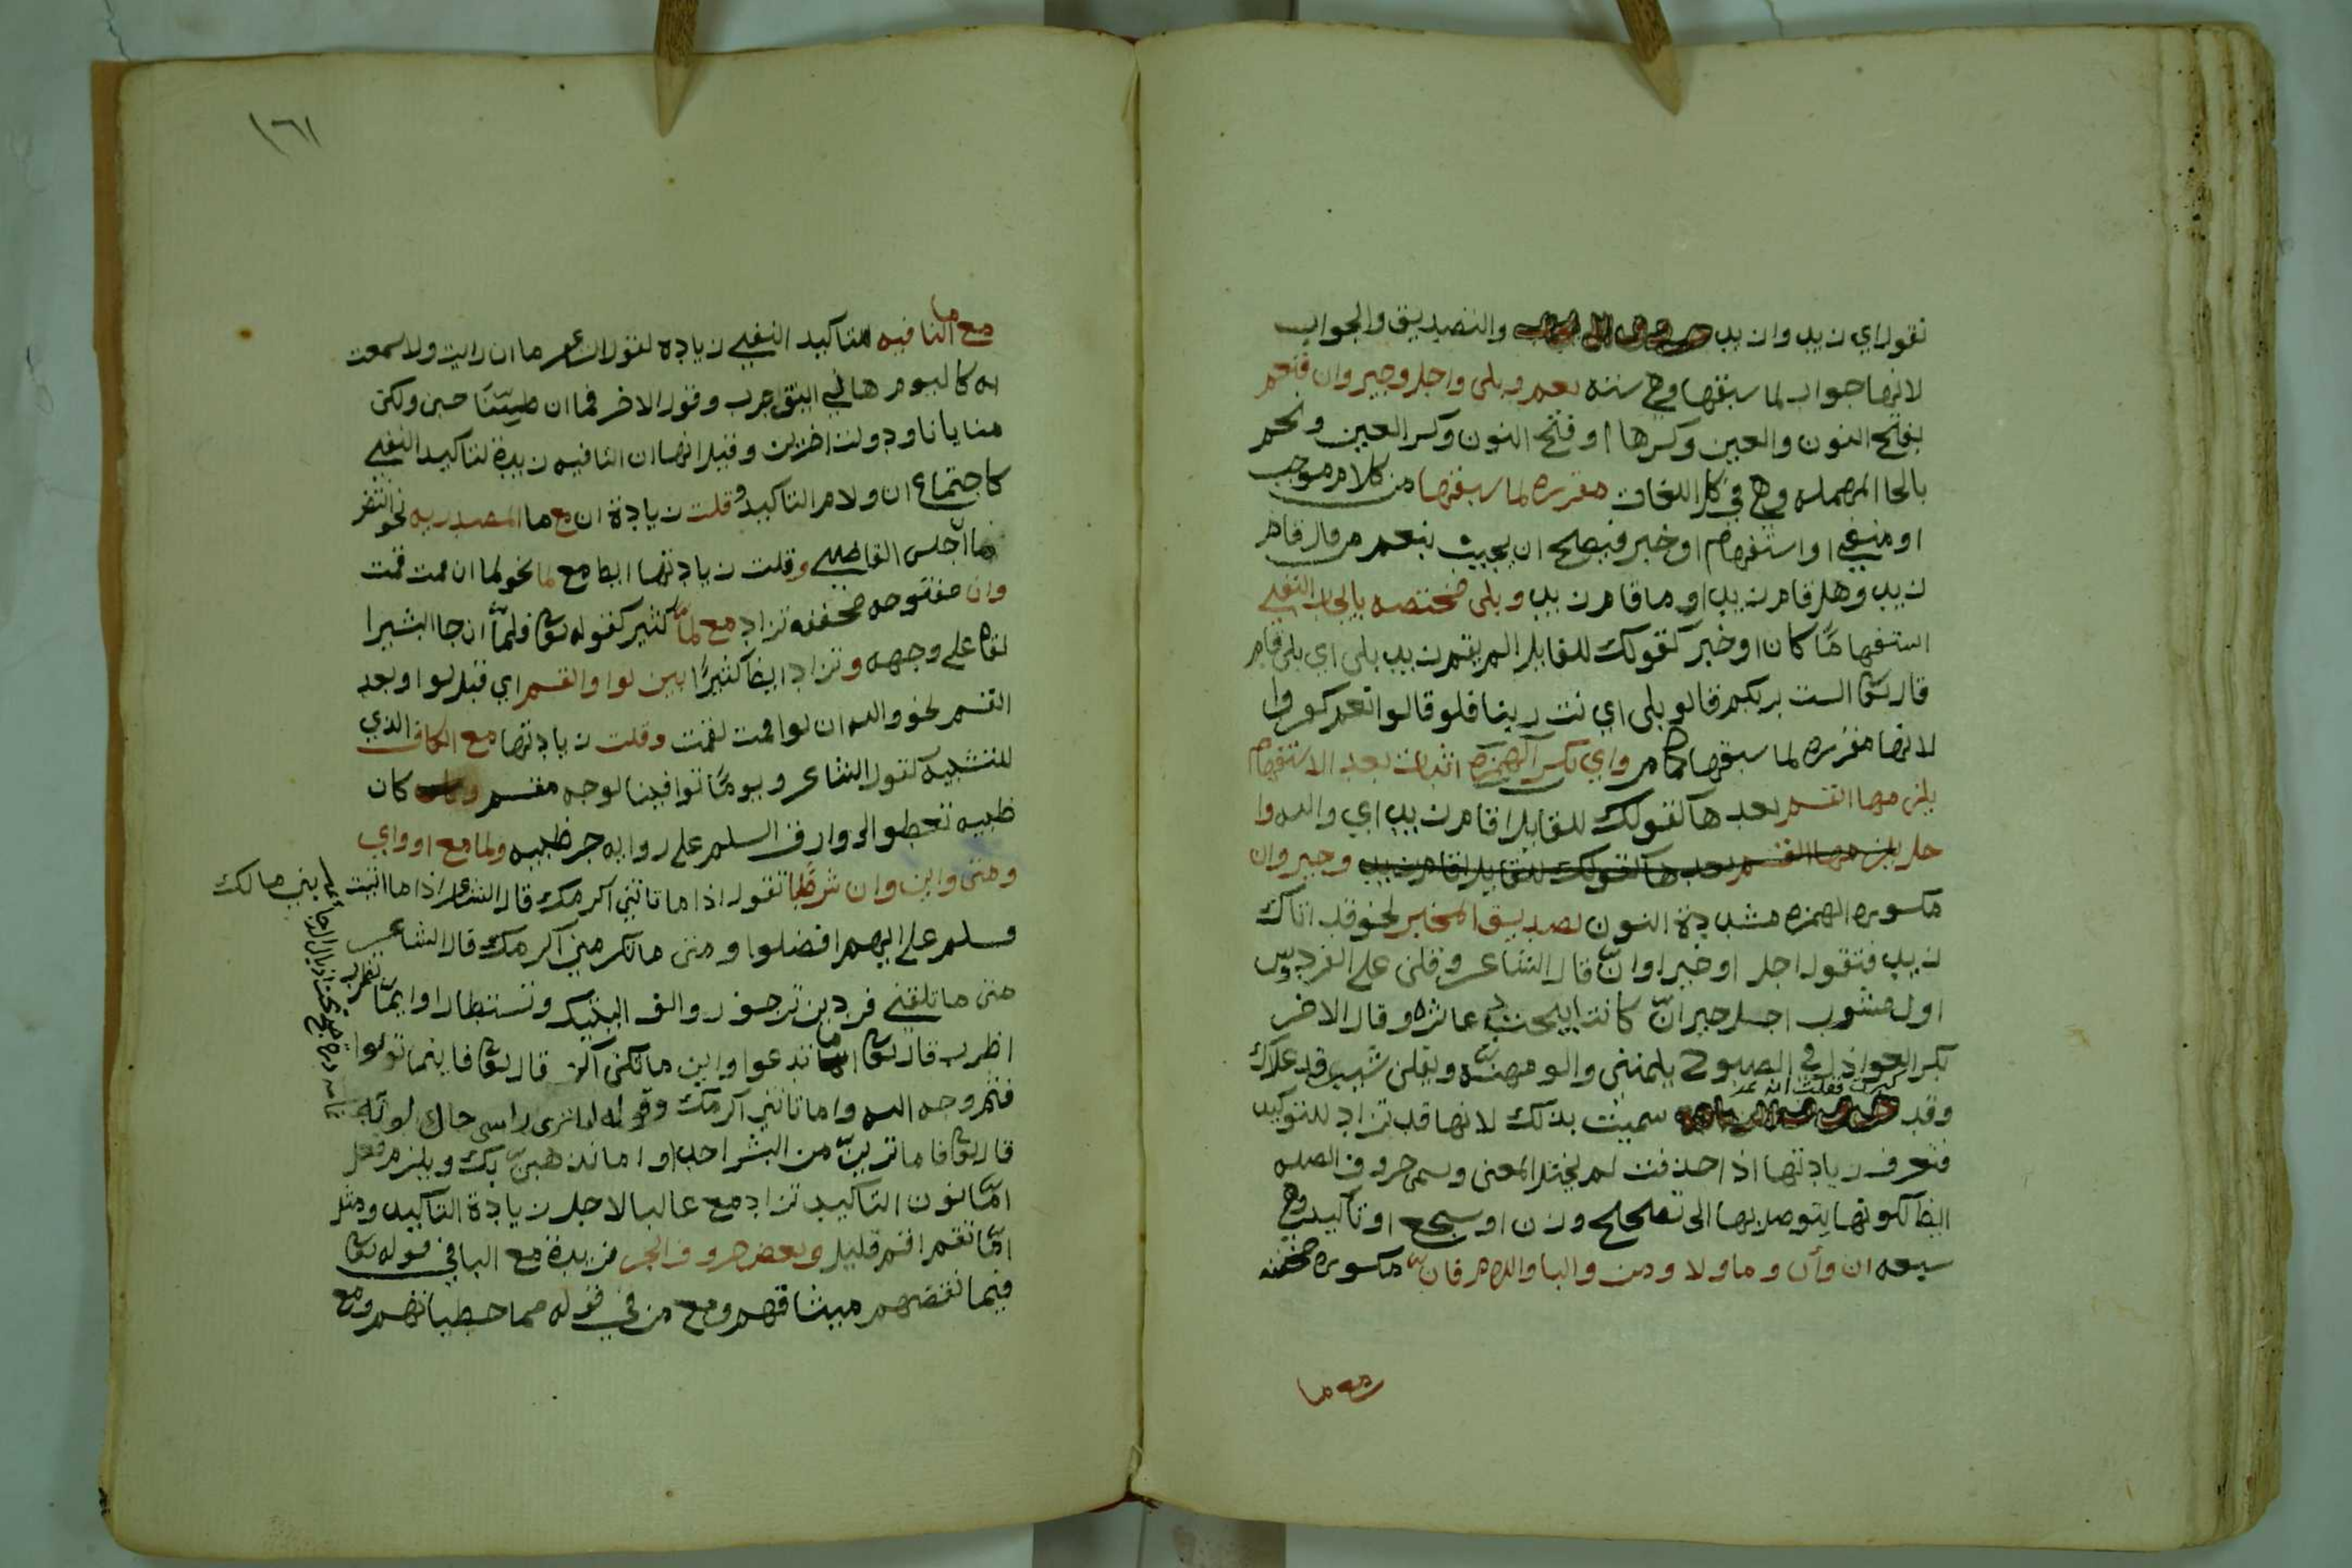 تقول اي زيد وان يد والتصديق والجواب
لانها جواب لما سبقها وهي ستة نعم وبلى واجل وجير وان فنعم
بفتح النون والعين وكسرها او فتح النون وكسر العين ونحم
بالحا المهملة وهي في كل اللغات مقررة لما سبقها من كلام موجب
او منفي او استفهام او خبر فيصلح ان يجيب بنعم من قال قام
زيد وهل قام زيد او ما قام زيد وبلى مختصة بايجاب النفي
استفهاما كان او خبر كقولك للقايل الم يقم زيد بلى اي بلى قام
قال تعا الست بربكم قالو بلى اي نت ربنا فلو قالوا نعم كفروا
لانها مقررة لما سبقها كما مر واي بكسر الهمزة اثبات بعد الاستفهام
يلزمها القسم بعدها كقولك للقايل اقام زيد اي والله وا
جل يلزمها القسم بعدها كقولك للقايل اقام زيد وجير وان
مكسورة الهمزة مشددة النون تصديق المخبر نحو قد اتاك
زيد فتقول اجل او خير او ان قال الشاعر وقلن على الفردوس
اول مشرب اجل جير ان كانت ابيحت دعاثره وقال الاخر
بكر العواذل في الصبوح يلمنني والومهنه ويقلن شيب قد علاك
كبرت فقلت انه
وقد سميت بذلك لانها قد تزاد للتوكيد
فتعرف زيادتها اذا حذفت لم يختل المعنى وسمى حروف الصلة
ايضا لكونها يتوصل بها الى تصلح وزن او سجع او تاكيد وهي
سبعة ان وأن وما ولا ومن والبا واللام فان مكسورة مخففة
مع ما
١٦١
مع ما النافيه لتاكيد النفي زيادة لقول الشاعر ما ان رايت ولا سمعت
به كاليوم هاني اينق جرب وقول الاخر فما ان طبنا جبن ولكن
منايانا ودولت اخرين وقيل انها ان النافيه زيدة لتاكيد النفي
كاجتماع ان ولام التاكيد وقلت زيادة ان مع ما المصدريه نحو انتظر
ما اجلس القاضي وقلت زيادتها ايضا مع لما نحو لما ان قمت قمت
وان مفتوحه مخففه تزاد مع لما كثير كقوله تعا فلما ان جا البشيرا
لقاه على وجهه وتزاد ايضا كثيرا بين لو والقسم اي قبل لو او بعد
القسم نحو والله ان لو اقمت لقمت وقلت زيادتها مع الكاف الذي
للتشبيه كقول الشاعر ويوما توافينا لوجه مقسم كان
ظبيه تعطو الى وارف السلم على روايه جر ظبيه ولما مع او واي
ومتى واين وان شرطيا تقول اذا ما تاتني اكرمك قال الشاعر اذا ما اتيت بني مالك
فسلم على ايهم افضلوا ومتى ما تكرمني اكرمك قال الشاعر
متى ما تلقني فردين ترجف روانف اليتيك وتستطارا وايما تضرب
اضرب قال تعا ما تدعوا واين ما تكن اكن قال تعا فاينما تولوا
فثم وجه الله واما تاتني اكرمك وقوله اما ترى راسي حاك لونه
قال تعا فاما ترين من البشر احدا واما نذهبن بك ويلزم فعل
اما نون التاكيد تزاد مع غالبا لاجل زيادة التاكيد ومثل
اما تقم اقم قليل وبعض حروف الجر مزيدة مع البا في قوله تعا
فبما نقضهم ميثاقهم ومع من في قوله مما خطياتهم ومع